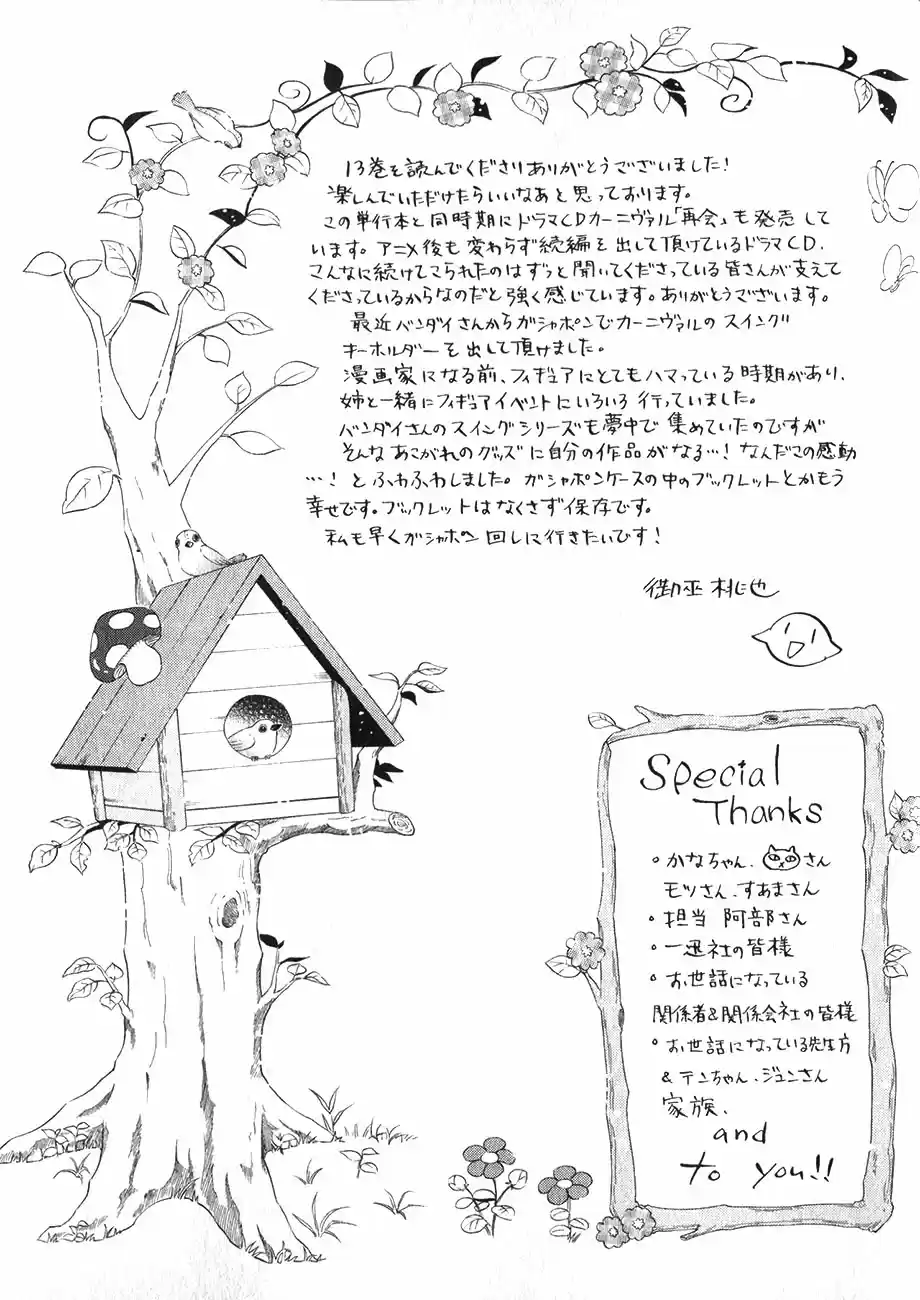 13巻を読んでくださりありがとうございました!
楽しんでいただけたらいいなあと思っております。
この単行本と同時期にドラマCDカーニヴァル「再会」も発売して
います。アニメ後も変わらず続編を出して頂けているドラマCD、
こんなに続けてこられたのはずっと聞いてくださっている皆さんが支えて
くださっているからなのだと強く感じています。ありがとうございます。
最近バンダイさんからガシャポンでカーニヴァルのスイング
キーホルダーを出して頂けました。
漫画家になる前、フィギュアにとてもハマっている時期があり、
姉と一緒にフィギュアイベントにいろいろ行っていました。
バンダイさんのスイングシリーズも夢中で集めていたのですが
そんなあこがれのグッズに自分の作品がなる…!なんだこの感動
…!とふわふわしました。ガシャポンケースの中のブックレットとかもう
幸せです。ブックレットはなくさず保存です。
私も早くガシャポン回しに行きたいです!
御巫桃也
Special
Thanks
・かなちゃん、さん
モツさん、すあまさん
・担当 阿部さん
・一迅社の皆様
・お世話になっている
関係者&関係会社の皆様
・お世話になっている先生方
&テンちゃん、ジュンさん
家族、
and
to you!!